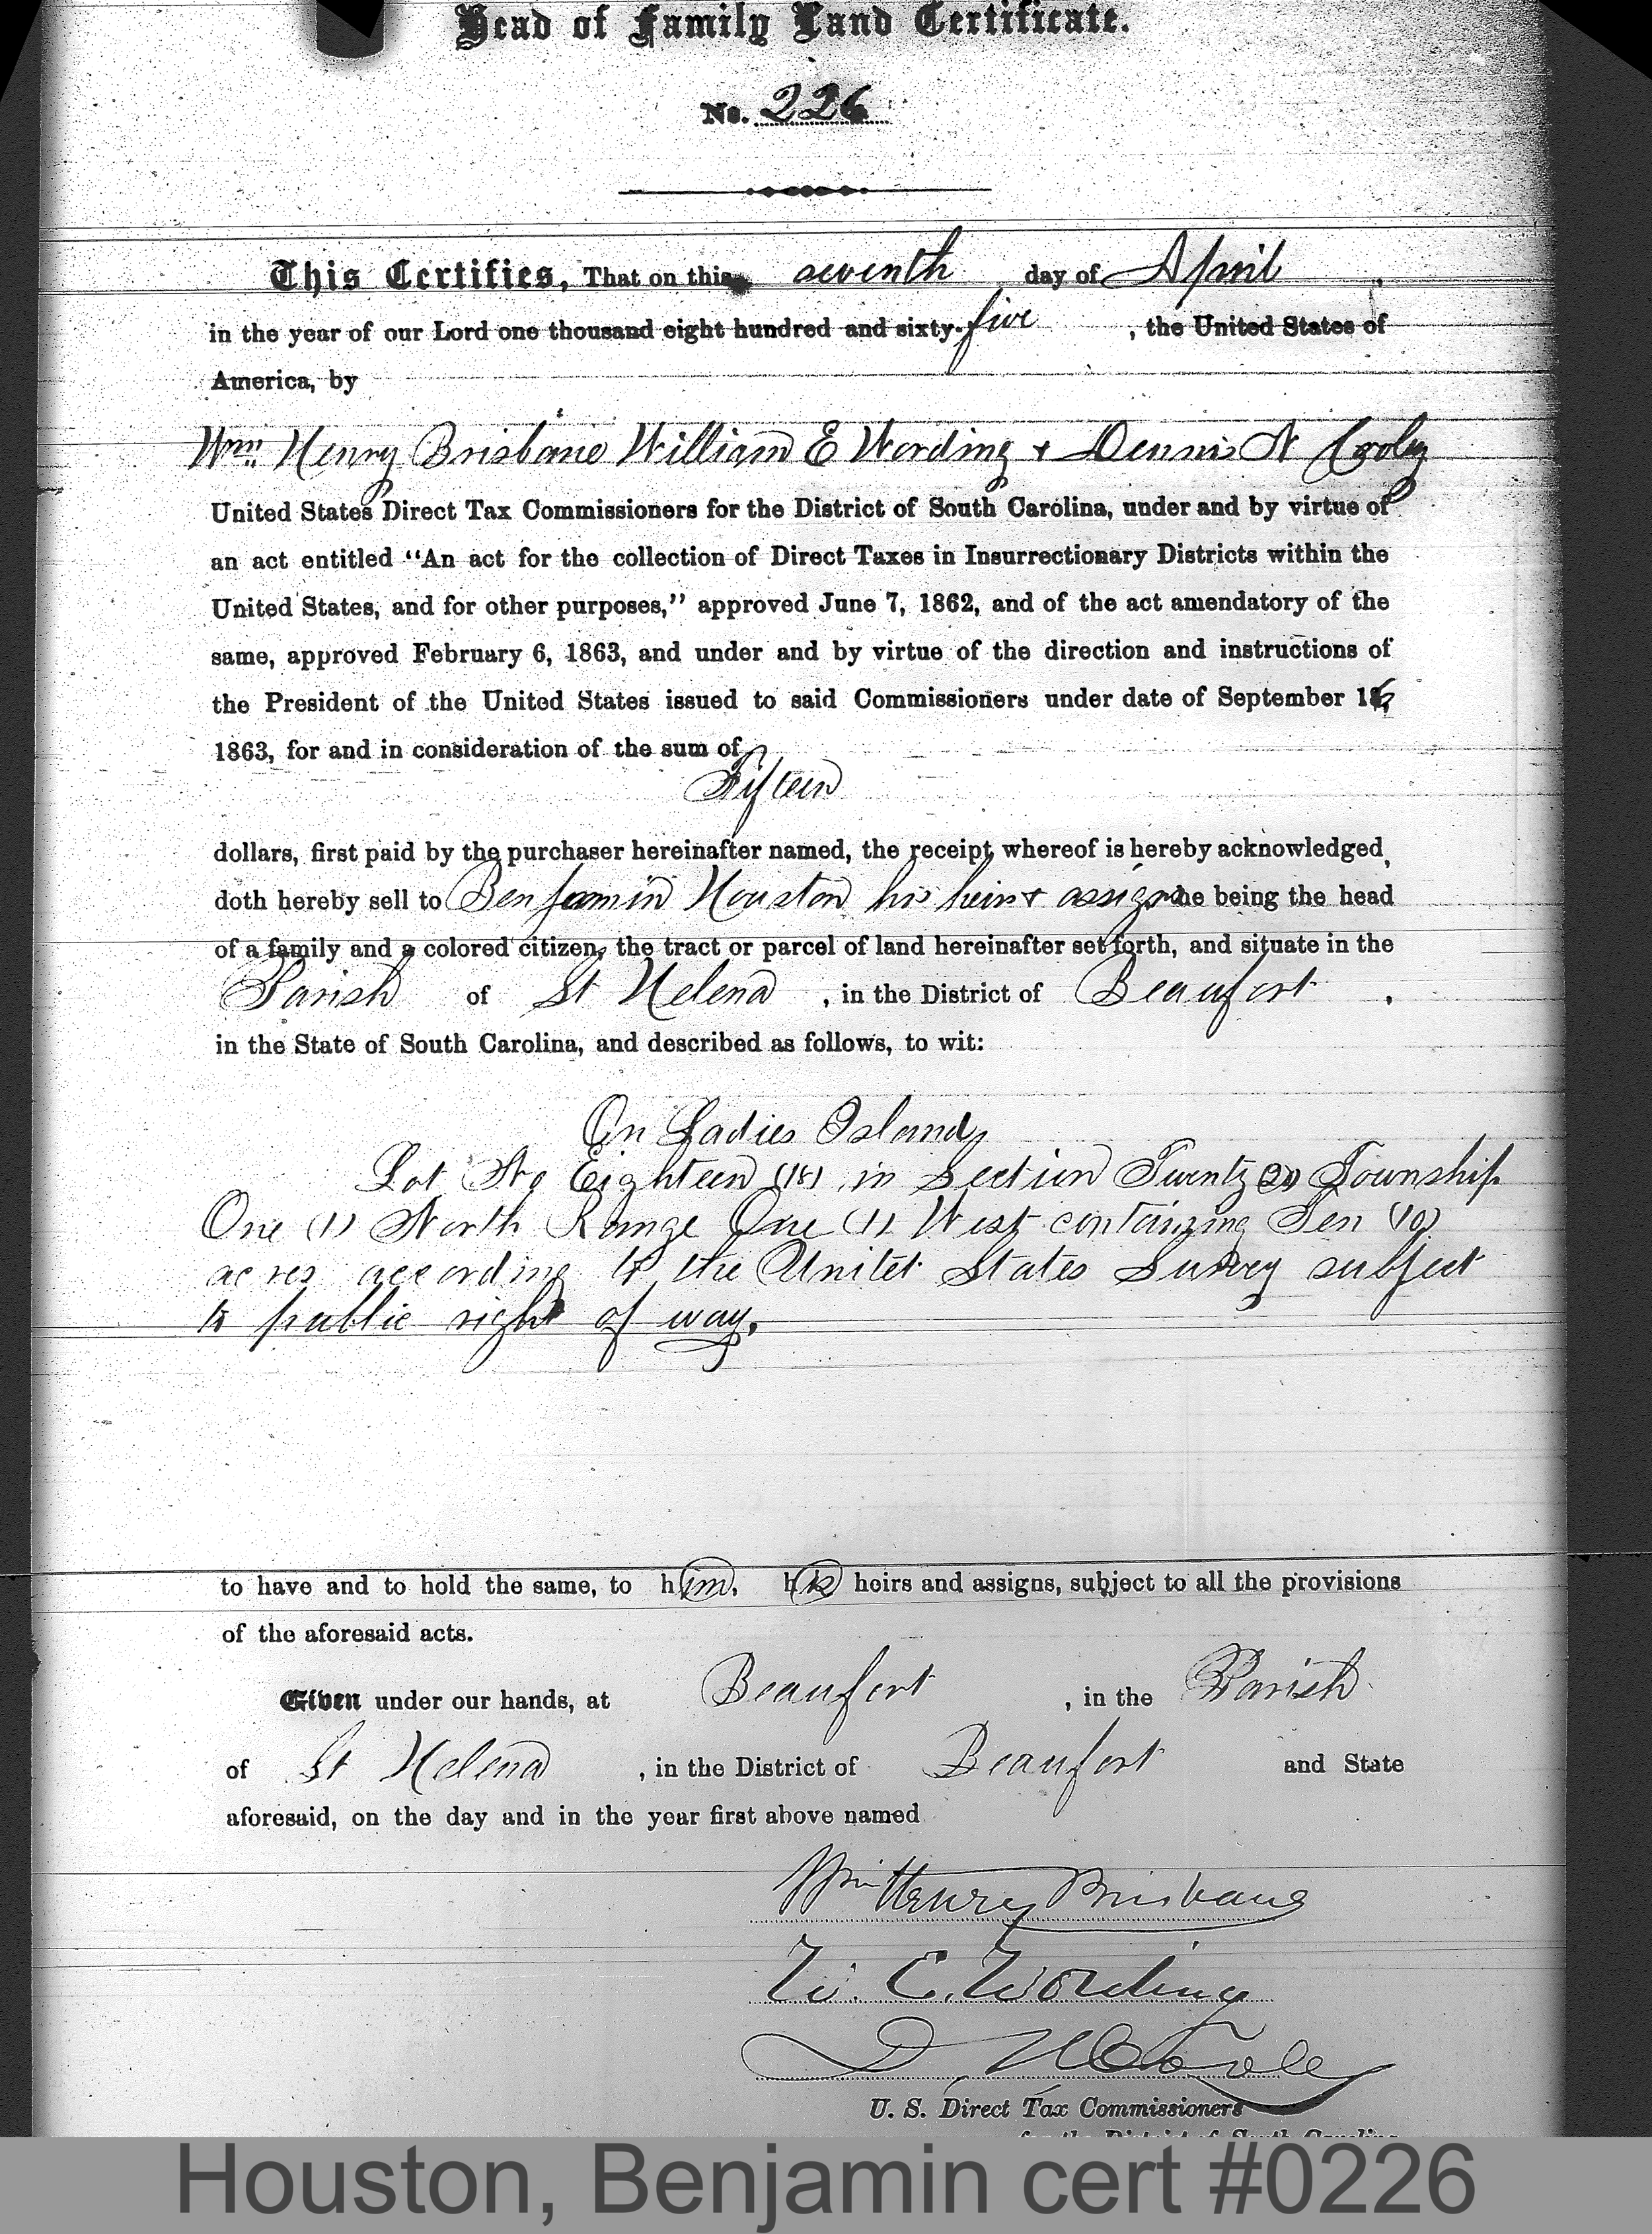 Head of Family Land Certificate.
No. 226
This Certifies, That on this seventh day of April
in the year of our Lord one thousand eight hundred and sixty-five, the United States of
America, by
Wm. Henry Brisbane William E Wording & Dennis N Cooley
United States Direct Tax Commissioners for the District of South Carolina, under and by virtue of
an act entitled "An act for the collection of Direct Taxes in Insurrectionary Districts within the
United States, and for other purposes," approved June 7, 1862, and of the act amendatory of the
same, approved February 6, 1863, and under and by virtue of the direction and instructions of
the President of the United States issued to said Commissioners under date of September 16,
1863, for and in consideration of the sum of
Fifteen
dollars, first paid by the purchaser hereinafter named, the receipt whereof is hereby acknowledged,
doth hereby sell to Benjamin Houston his heirs & assigns he being the head
of a family and a colored citizen, the tract or parcel of land hereinafter set forth, and situate in the
Parish of St Helena, in the District of Beaufort,
in the State of South Carolina, and described as follows, to wit:
On Ladies Island
Lot No Eighteen (18) in Section Twenty (20) Township
One (1) North Range One (1) West containing Ten (10)
acres according to the Unitet States Survey subject
to public right of way.
to have and to hold the same, to him, his heirs and assigns, subject to all the provisions
of the aforesaid acts.
Given under our hands, at Beaufort, in the Parish
of St Helena, in the District of Beaufort and State
aforesaid, on the day and in the year first above named
Wm Henry Brisbane
W. E. Wording
D N Cooley
U. S. Direct Tax Commissioners
for the District of South Carolina
Houston, Benjamin cert #0226